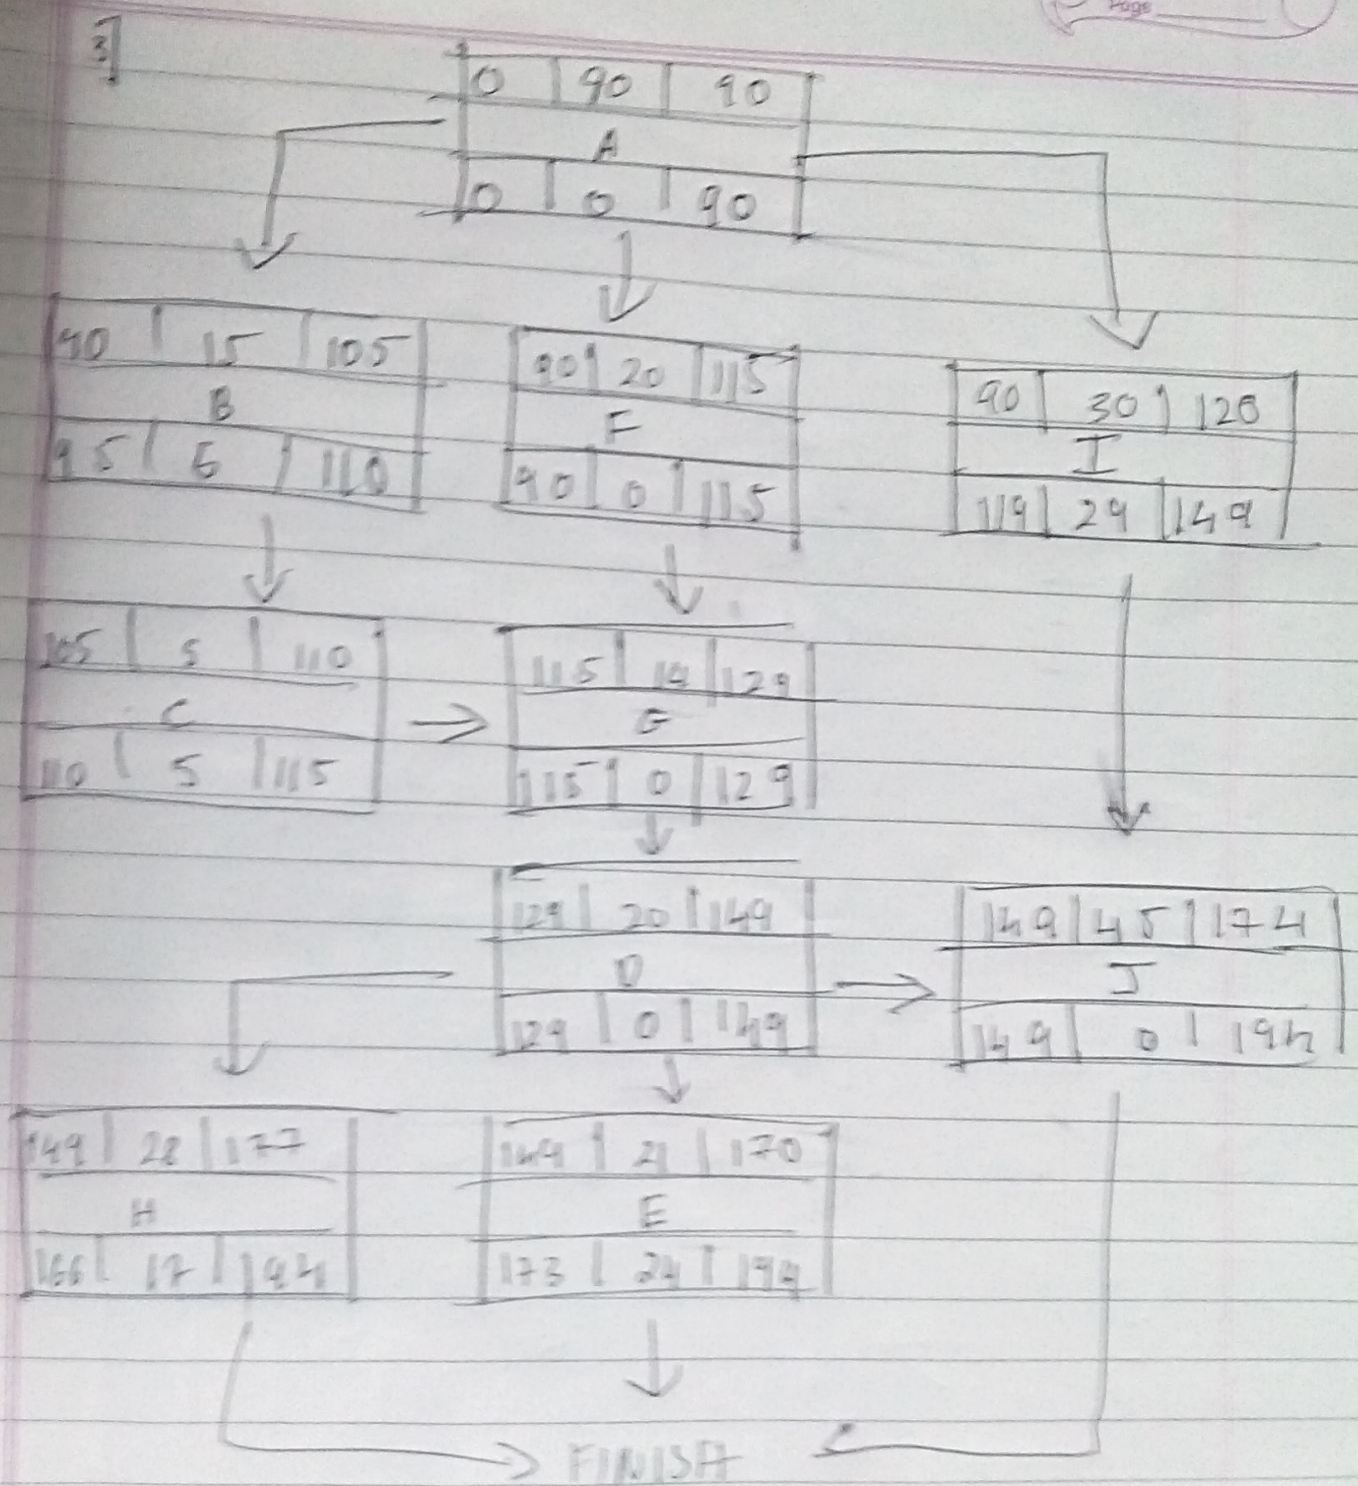 Page
3]
0 90 90
A
0 0 90
90 15 105
B
95 5 110
90 20 115
F
90 0 115
90 30 120
I
119 29 149
105 5 110
C
110 5 115
115 14 129
G
115 0 129
129 20 149
D
129 0 149
149 45 174
J
149 0 194
149 28 177
H
166 17 194
149 21 170
E
173 24 194
FINISH